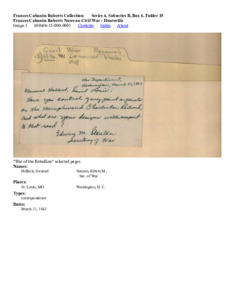 Frances Cabaniss Roberts Collection: Series 4, Subseries B, Box 6, Folder 15
Frances Cabaniss Roberts Notes on Civil War - Huntsville
Image 1 Contents Index About
Civil War
War Department,
Washington, March 11, 1862
General Halleck, Saint Louis:
Have you control of any point or points
on the Memphis and Charleston Railroad
And what are your designs with respect
to that road
Edwin M. Stanton
Secretary of War
"War of the Rebellion" selected pages
Names:
Halleck, General
Stanton, Edwin M.,
Sec. of War
Places:
St. Louis, MO
Washington, D. C.
Types:
correspondence
Dates:
March 11, 1862